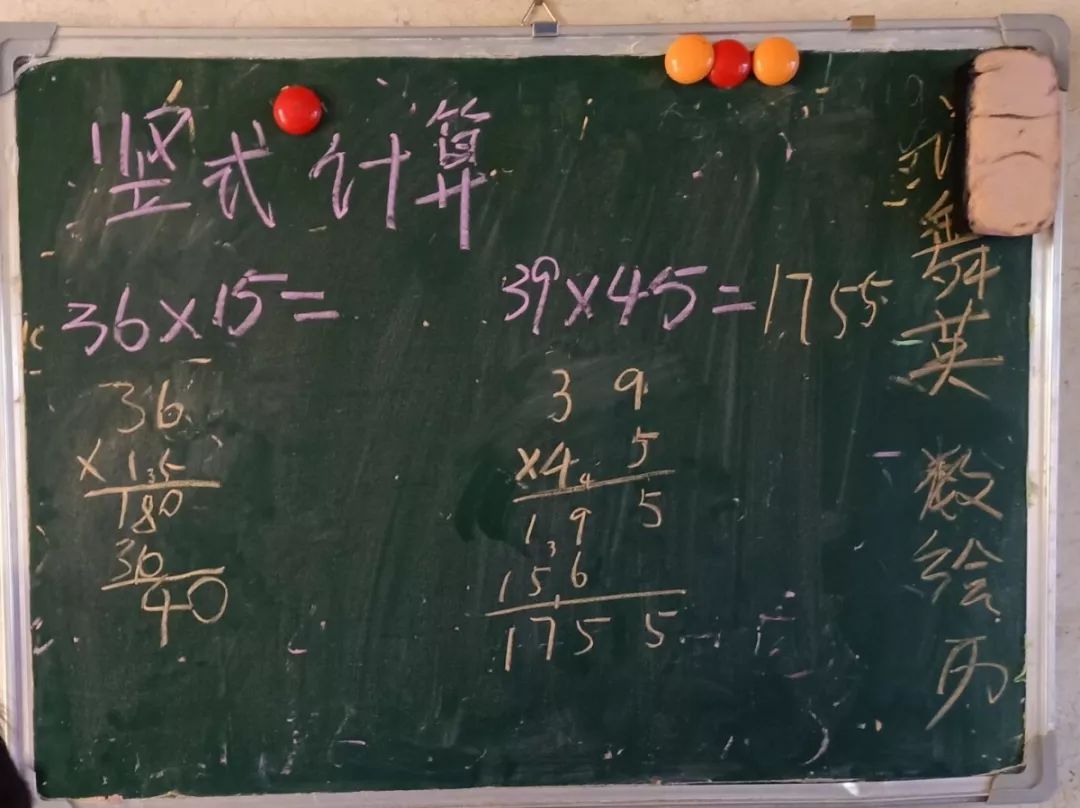 竖式计算
36×15=
36
×15
3
180
36
40
39×45=1755
3 9
×4 5
4
1 9 5
3
15 6
175 5
舞
英
数
绘
历